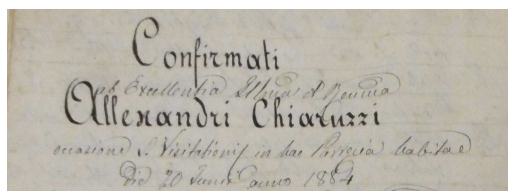 Confirmati
ab Excellentia Illma et Revma
Allexandri Chiaruzzi
occasione S. Visitationis in hac Parrecia habitae
Die 20 Junii anno 1884